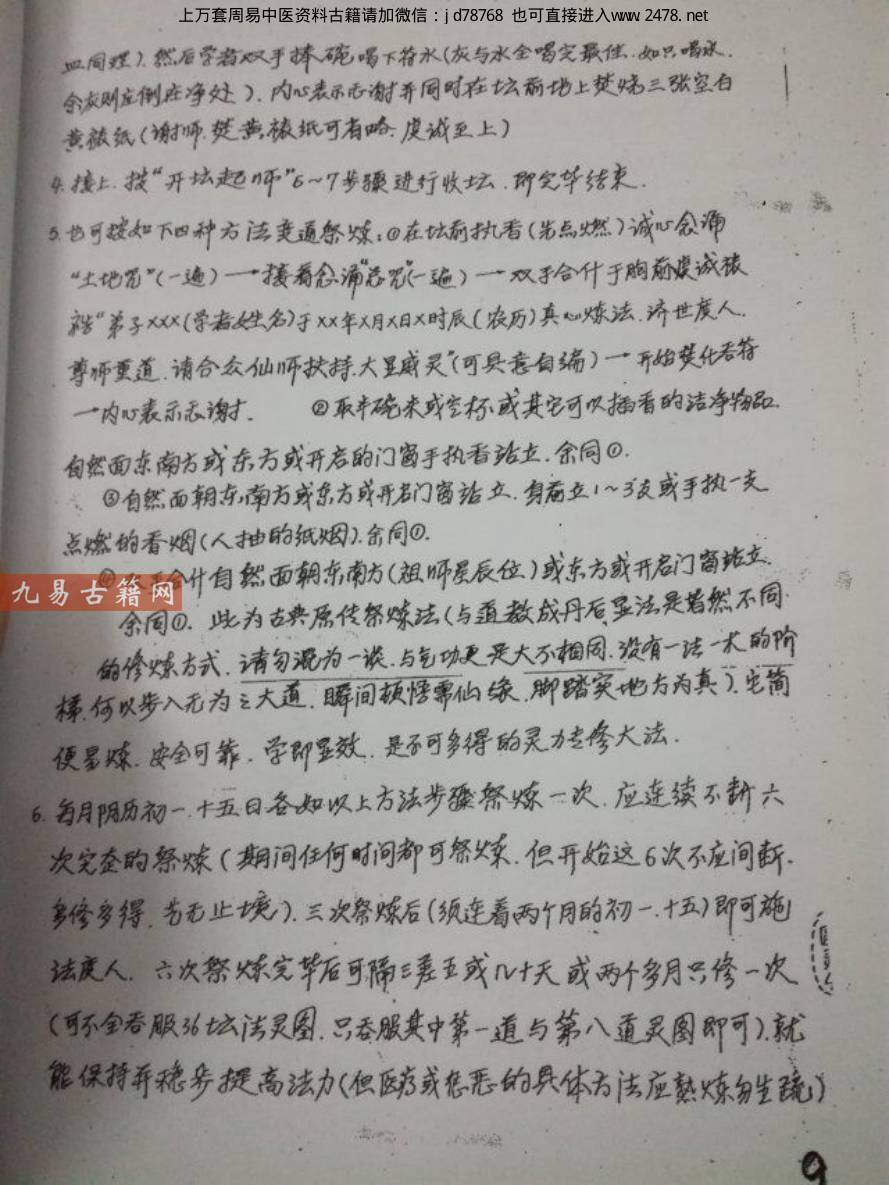 上万套周易中医资料古籍请加微信：jd78768 也可直接进入www.2478.net
血同理）.然后学者双手捧碗喝下符水（灰与水全喝完最佳.如只喝水.
余灰则应倒在净处）.内心表示感谢并同时在坛前地上焚烧三张空白
黄裱纸（谢师.焚黄裱纸可省略.虔诚至上）
4.接上.按“开坛起师”6～7步骤进行收坛.即完毕结束.
5.也可按如下四种方法变通祭炼：①在坛前执香（先点燃）诚心念诵
“土地咒”（一遍）→接着念诵“总咒”（一遍）→双手合什于胸前虔诚祷
“弟子×××（学者姓名）于××年×月×日×时辰（农历）真心炼法.济世度人.
尊师重道.请合众仙师扶持.大显威灵”（可具意自编）→开始焚化吞符
→内心表示感谢. ②取半碗米或空杯或其它可以插香的洁净物品.
自然面东南方或东方或开启的门窗手执香站立.余同①.
③自然面朝东南方或东方或开启门窗站立.身前立1～3支或手执一支
点燃的香烟（人抽的纸烟）.余同①.
合什自然面朝东南方（祖师星辰位）或东方或开启门窗站立
九易古籍网
余同①.此为古典原传祭炼法（与道教成丹后显法是截然不同
的修炼方式.请勿混为一谈.与气功更是大不相同.没有一法一术的阶
梯.何以步入无为之大道.瞬间顿悟需仙缘.脚踏实地方为真）.它简
便易炼.安全可靠.学即显效.是不可多得的灵力专修大法.
6.每月阴历初一.十五日各如以上方法步骤祭炼一次.应连续不断六
次完整的祭炼（期间任何时间都可祭炼.但开始这6次不应间断.
多修多得.艺无止境）.三次祭炼后（须连着两个月的初一.十五）即可施
法度人.六次祭炼完毕后可隔三差五或几十天或两个多月只修一次
（可不全吞服36坛法灵图.只吞服其中第一道与第八道灵图即可）.就
能保持并稳步提高法力（但医疗或惩恶的具体方法应熟炼勿生疏）
9